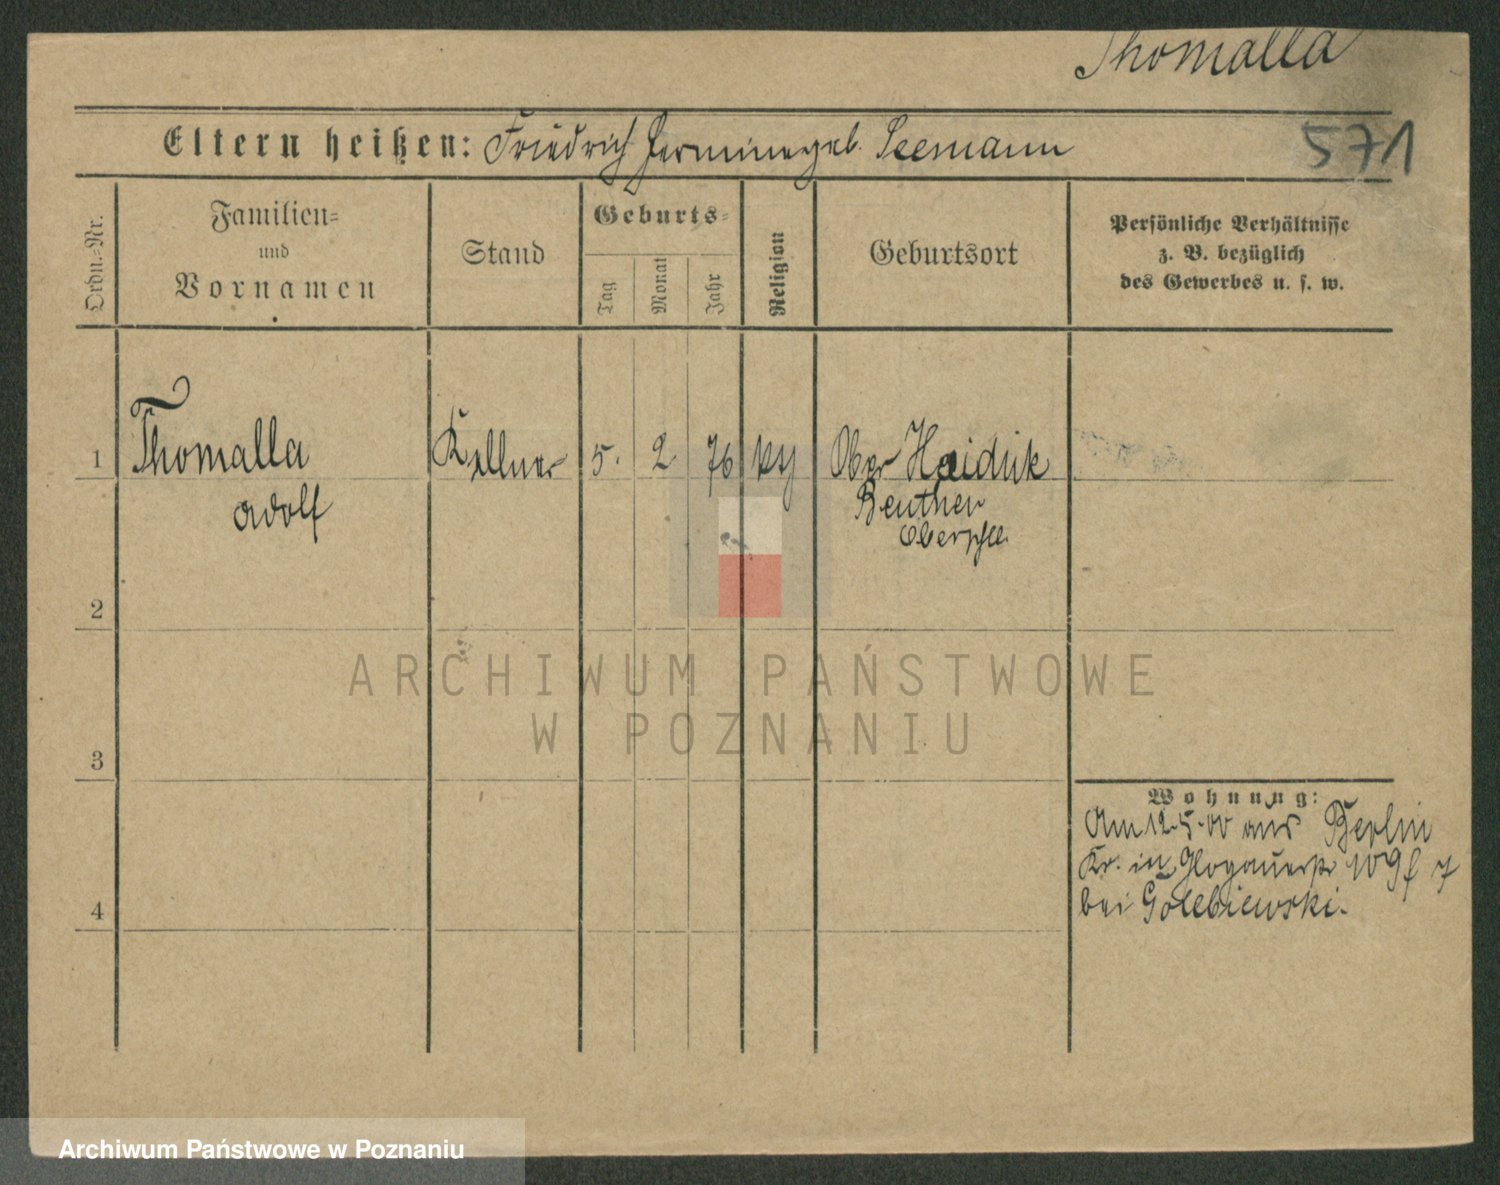 Thomalla
571
Eltern heißen: Friedrich Hermine geb. Seemann
Ordn.-Nr.
Familien-
und
Vornamen
Stand
Geburts-
Tag
Monat
Jahr
Religion
Geburtsort
Persönliche Verhältnisse
z. B. bezüglich
des Gewerbes u. s. w.
1 Thomalla Kellner 5. 2 76 Ober Haiduk
Adolf Beuthen
Oberschl.
2
3
4
Wohnung:
Am 12.5.00 aus Berlin
Kr. in Glogauerstr
bei Golebiewski.
ARCHIWUM PAŃSTWOWE
W POZNANIU
Archiwum Państwowe w Poznaniu